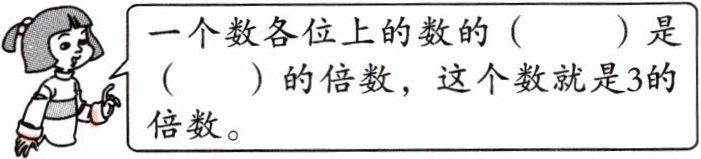 一个数各位上的数的（　　）是
（　　）的倍数，这个数就是3的
倍数。